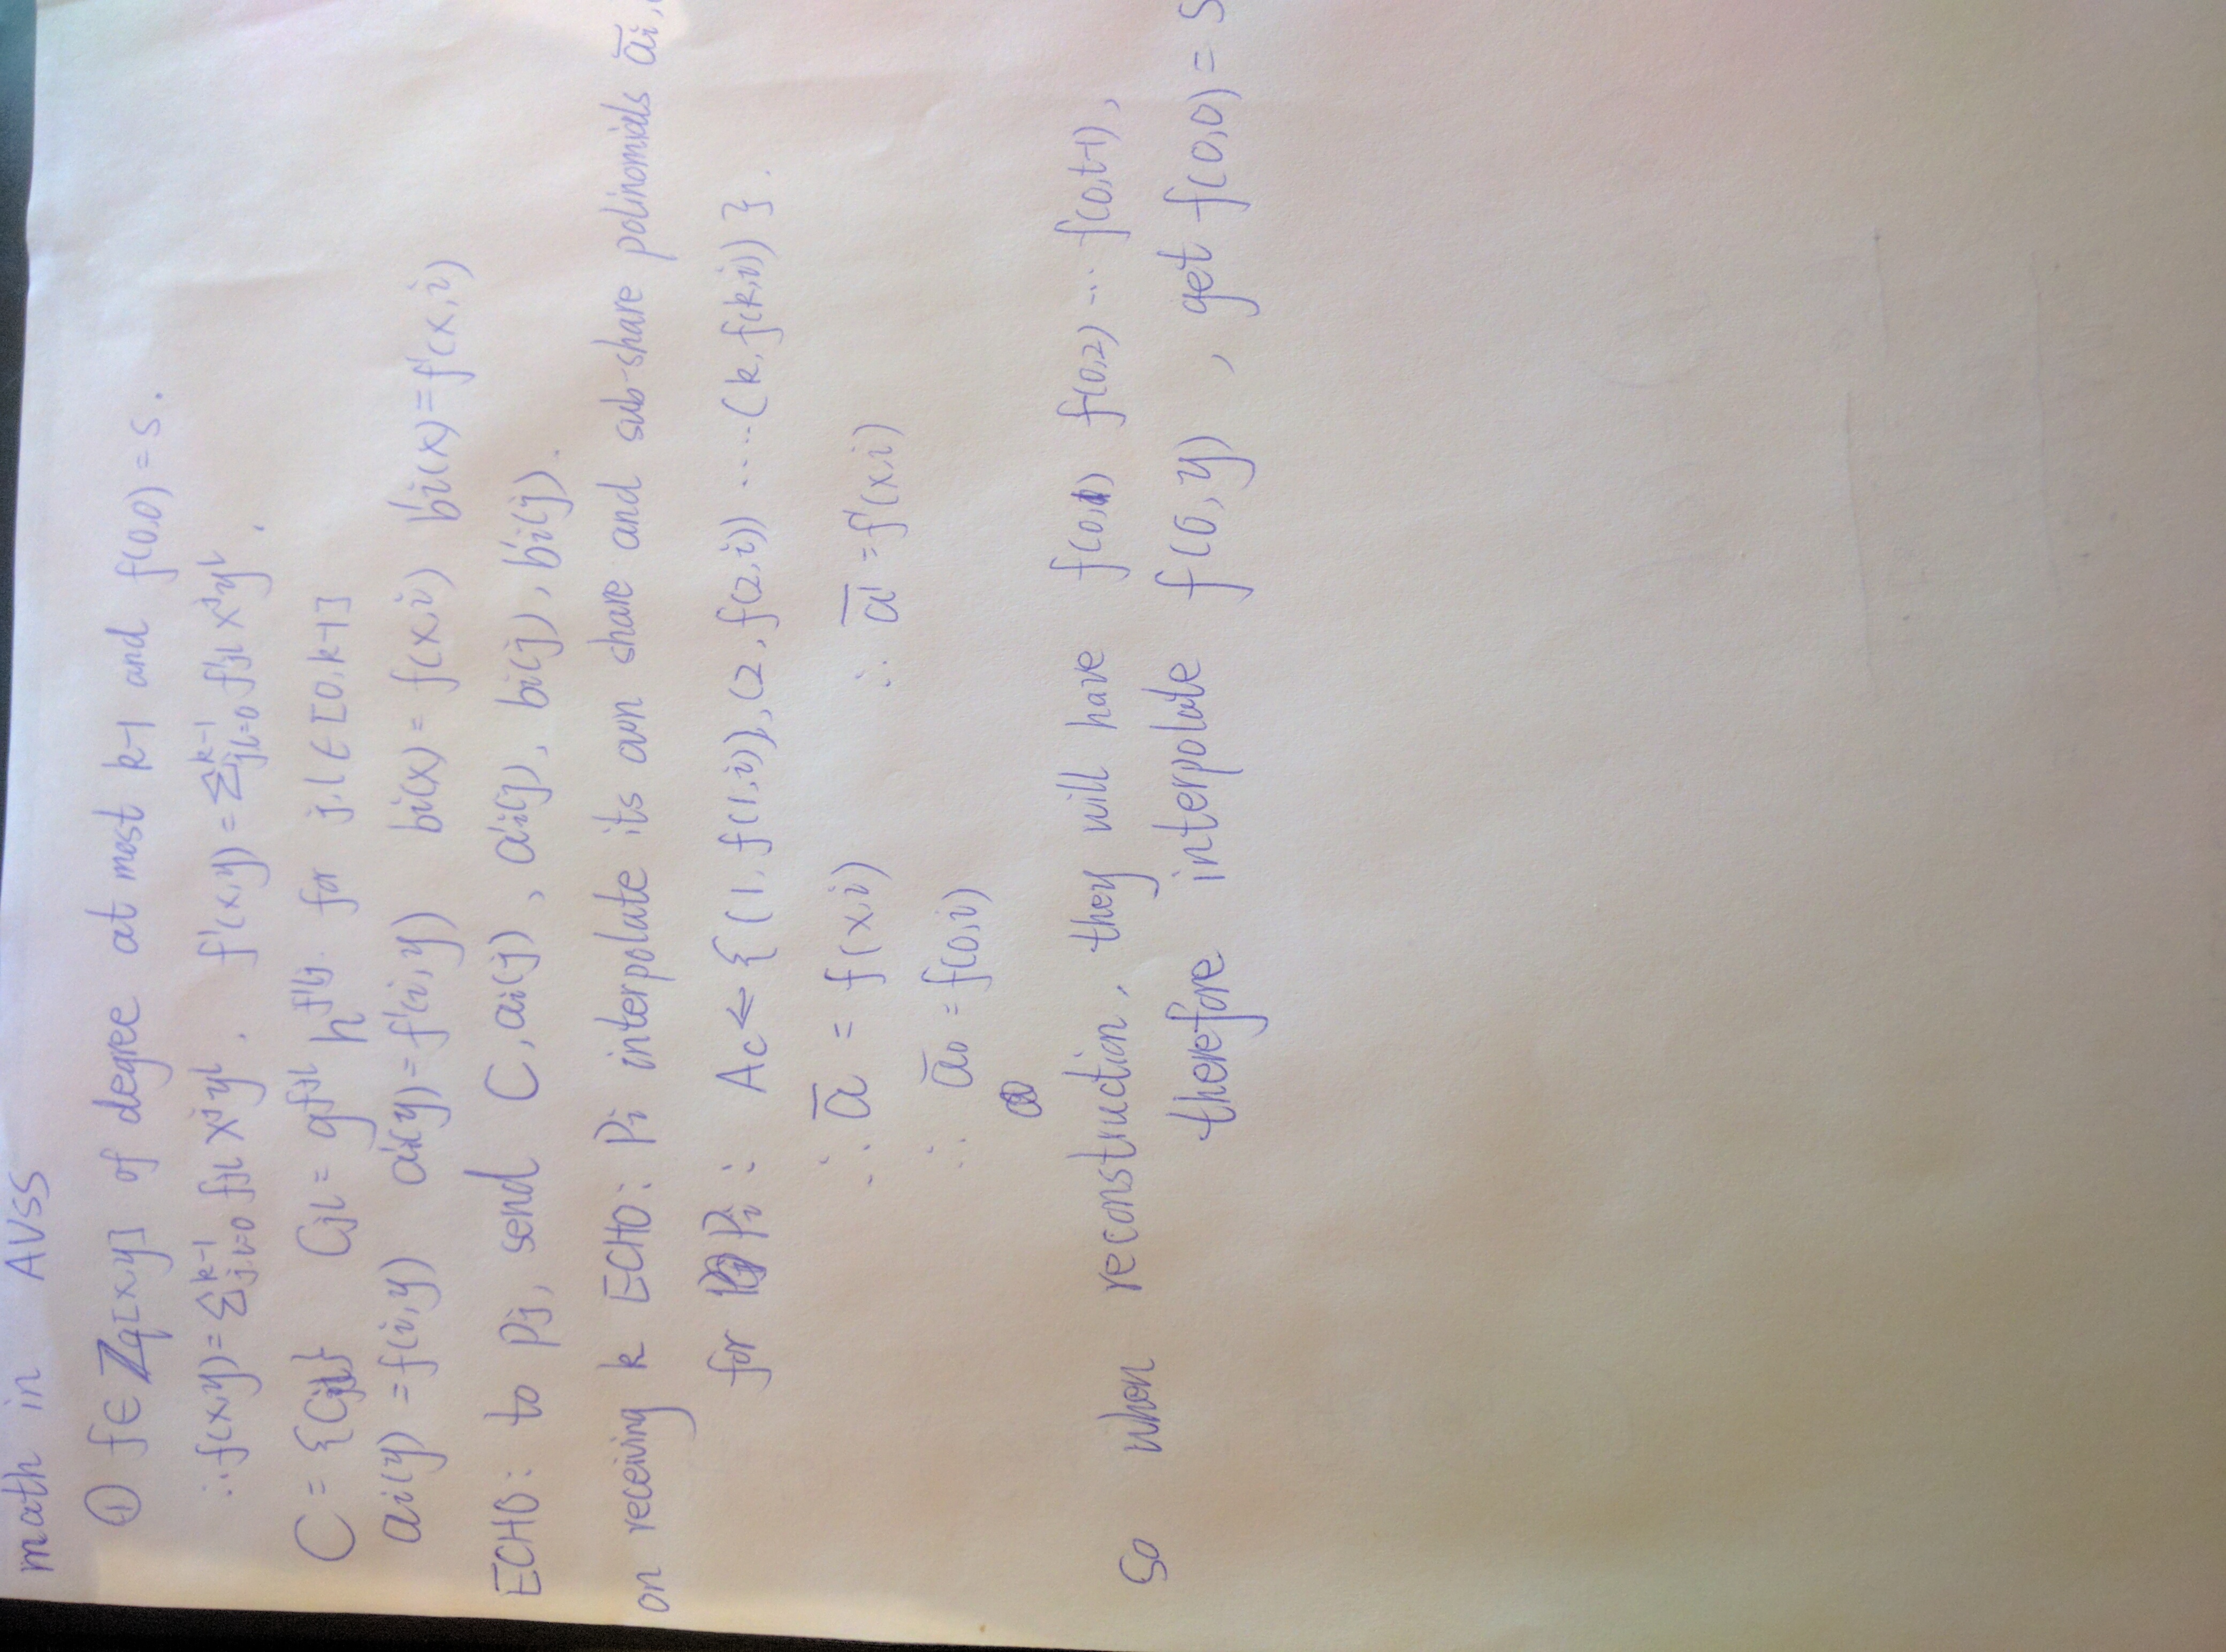 math in AVSS
① f∈ℤq[x,y] of degree at most k-1 and f(0,0)=s.
∴f(x,y)=Σ^{k-1}_{j,l=0} fjl x^j y^l. f'(x,y)=Σ^{k-1}_{j,l=0} f'jl x^j y^l,
C={Cjl} Cjl=g^{fjl} h^{f'lj} for j,l∈[0,k-1]
ai(y)=f(i,y) a'i(y)=f'(i,y) bi(x)=f(x,i) b'i(x)=f'(x,i)
ECHO: to pj, send C, ai(j), a'i(j), bi(j), b'i(j).
on receiving k ECHO: Pi interpolate its own share and sub-share polinomials āi,
for Pi: Ac←{(1,f(1,i)),(2,f(2,i))....(k,f(k,i))}.
∴ ā = f(x,i) ∴ ā' = f'(x,i)
∴ ā0 = f(0,i)
so when reconstruction, they will have f(0,1) f(0,2) ... f(0,t-1),
therefore interpolate f(0,y), get f(0,0)=S